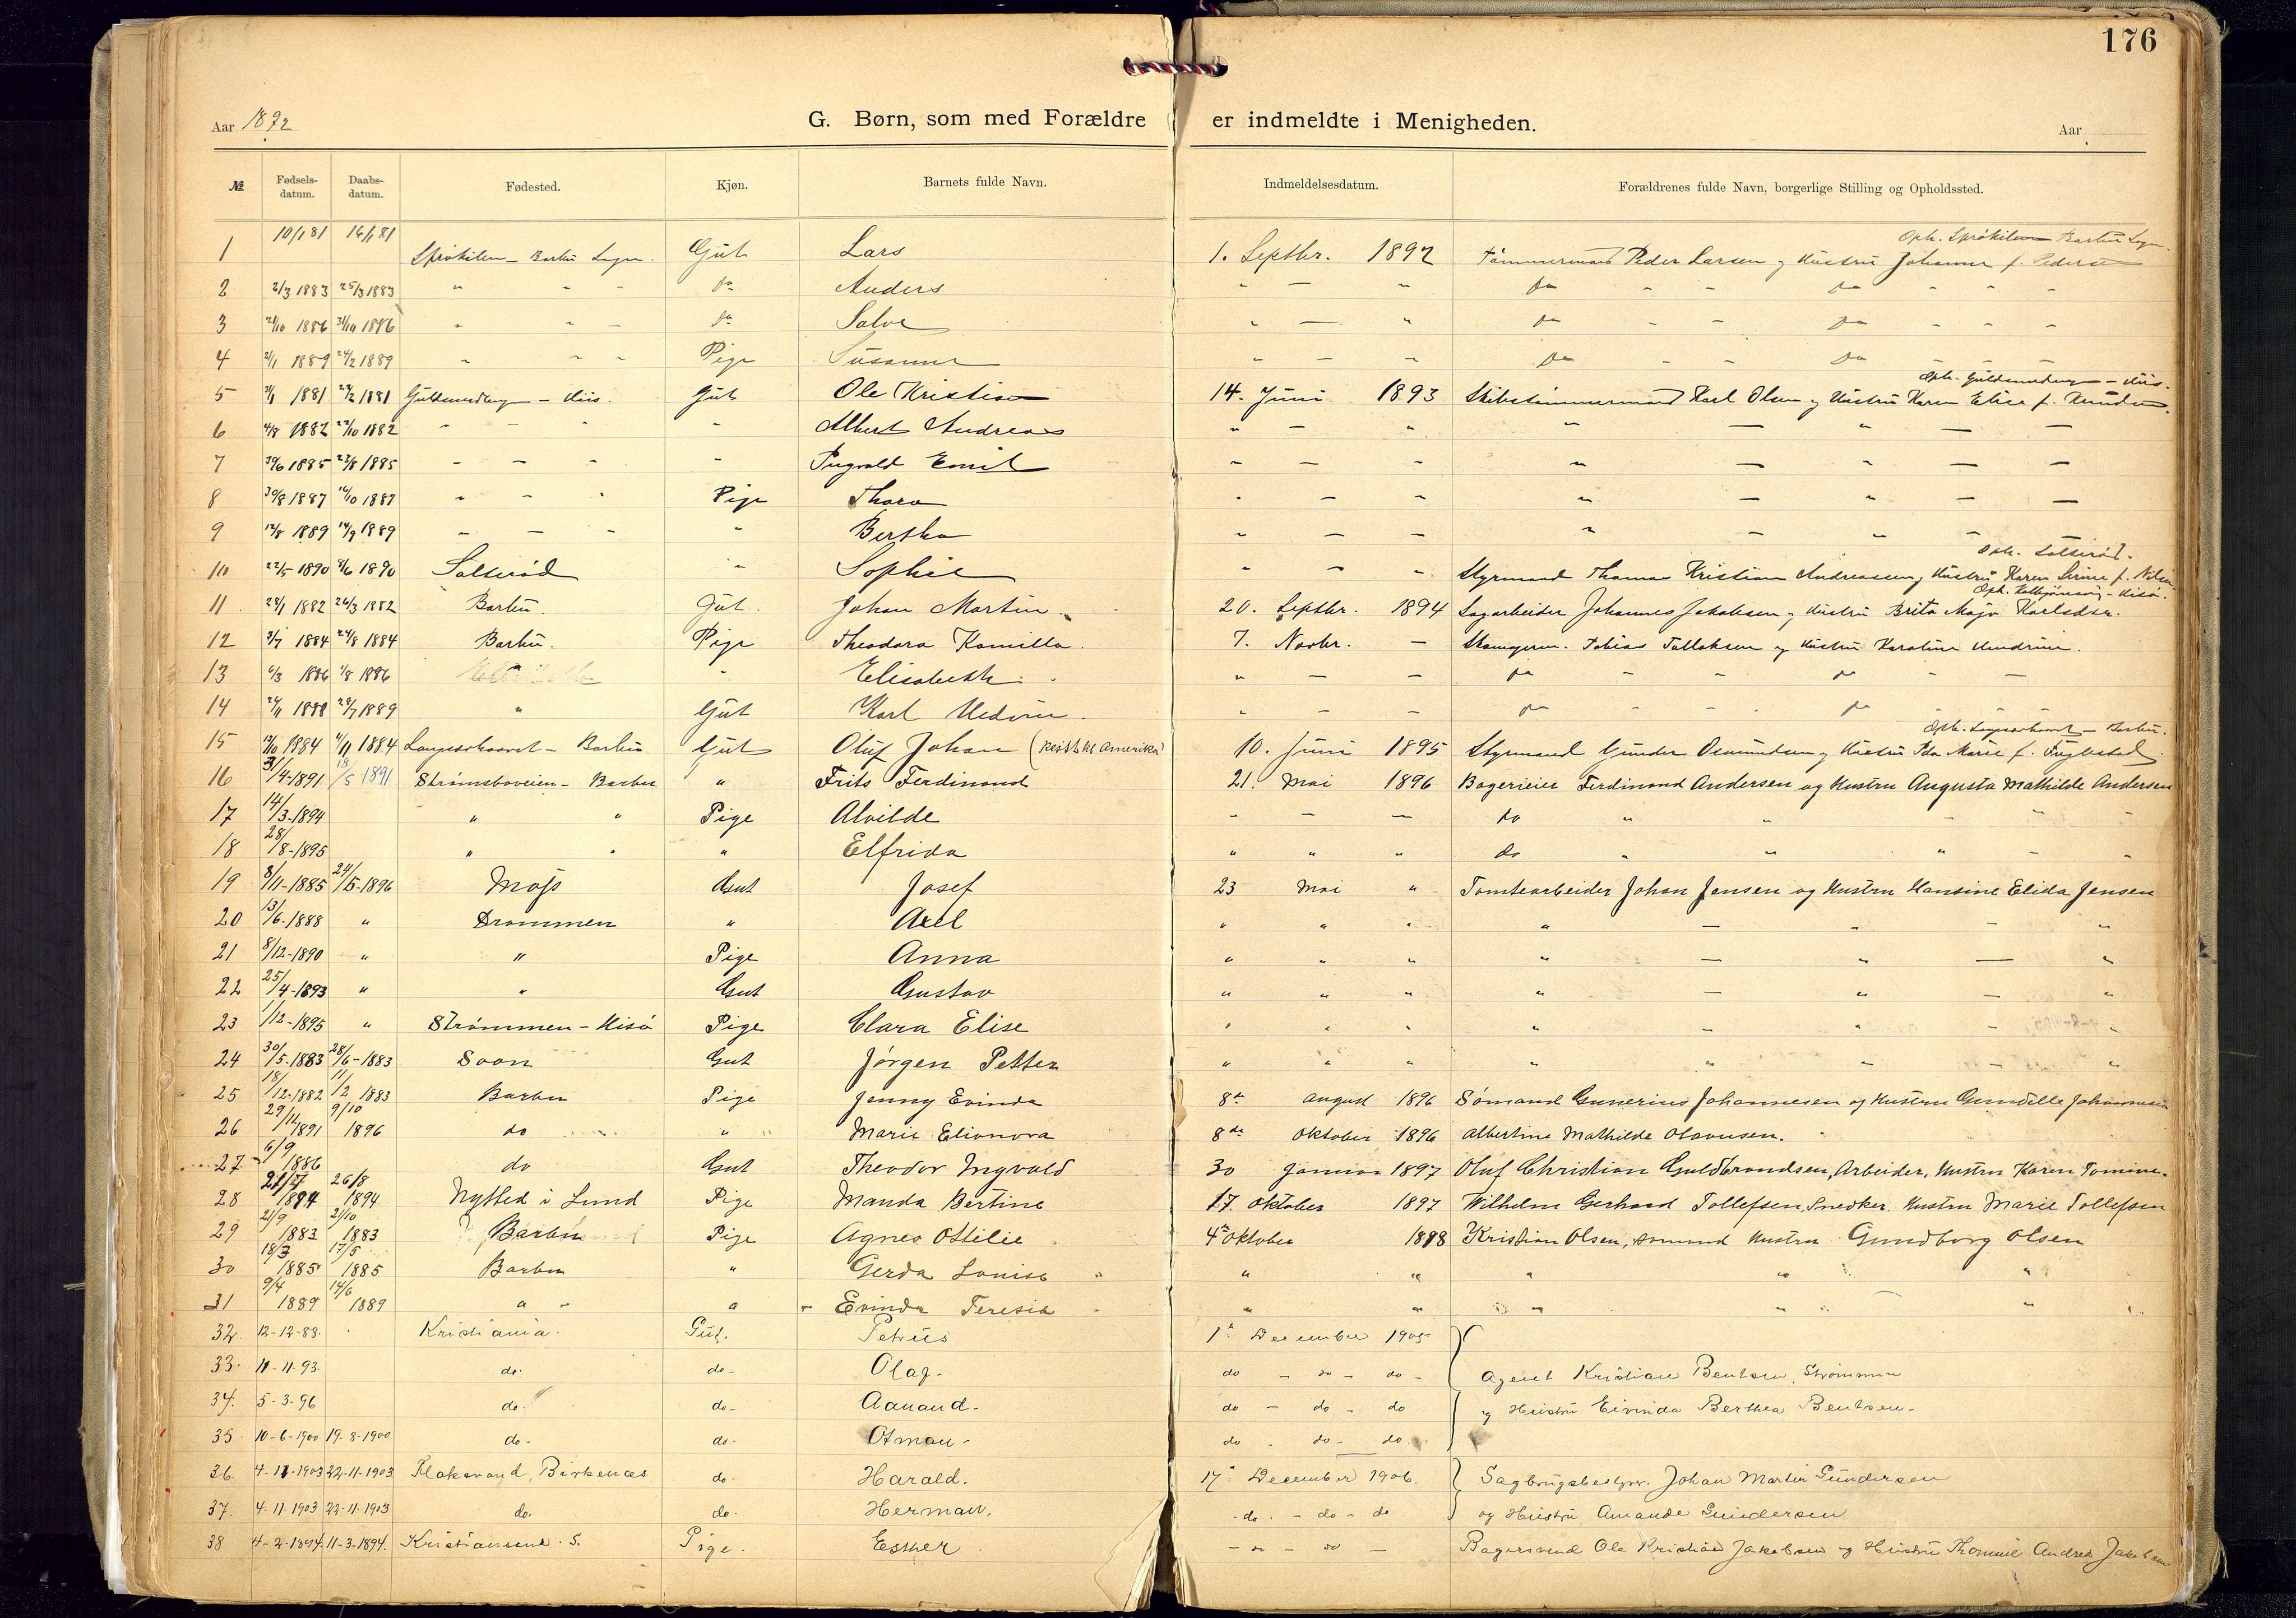 176
Aar 1892 G. Børn, som med Forældre er indmeldte i Menigheden. Aar
№ Fødsels-datum. Daabs-datum. Fødested. Kjøn. Barnets fulde Navn. Indmeldelsesdatum. Forældrenes fulde Navn, borgerlige Stilling og Opholdssted.
1 10/1 81 16/1 81 Barbu Sogn. Gut Lars 1. Septbr. 1892 Tømmermand Peder Larsen og Hustru Johanne f. Pedersen
2 2/3 1883 25/3 1883 " - - do Anders " - " do - - do - - -
3 1886 Salve " - " do - - do - - -
4 2/1 1889 24/2 1889 " " " Pige Susanne " - " do - - do - - -
5 1881 1881 His. Gut Ole Kristian 14. Juni 1893 Skibstømmermand Karl Olsen og Hustru Karen Elise f. Knudsen.
6 4/8 1882 22/10 1882 " - - " Albert Andreas " - " " - " - -
7 30/6 1885 23/8 1885 - - - - Ingvald Emil " - - " - " - -
8 30/8 1887 16/10 1887 " - " Pige Thora " - - " - " - -
9 12/8 1889 14/9 1889 - - - " Bertha - - - " - " - -
Oph. Solterød.
10 22/5 1890 8/6 1890 Solterød " Sophie " - " Styrmand Thomas Kristian Andreasen, Hustru Karen Serine f. Nilsen
11. 28/1 1882 26/3 1882 Barbu. Gut. Johan Martin. 20. Septbr. 1894 Sagarbeider Johannes Jakobsen og Hustru Brita Maja Karlsdtr.
12 3/7 1884 24/8 1884 Barbu. Pige Theodora Kamilla. 7. Novbr. - Tobias Tallaksen og Hustru Karoline Hendrine.
13 6/3 1886 1/8 1886 " Elisabeth. " - - do - - do - -
14 1888 28/7 1889 " Gut Karl Hedvin. " - - do - - - do - -
15 1884 1884 Barbu Gut Oluf Johan (reist til Amerika) 10. Juni 1895 Styrmand Gunder Osmundsen og Hustru Ida Marie f.
16 3/4-1891 18/5 1891 Strømsboveien - Barbu " Frits Ferdinand 21. Mai 1896 Bagerieier Ferdinand Andersen og Hustru Augusta Mathilde Andersen
17 14/3-1894 " " Pige Alvilde - - - do " " - " "
18 28/8-1895 " " " Elfrida " " " do " " " - "
19 8/11-1885 24/5-1896 Moss Gut Josef 23 Mai " Tomtearbeider Johan Jensen og Hustru Hansine Elida Jensen
20 13/6-1888 " Drammen " Axel " " " " - " - "
21 8/12-1890 " " Pige Anna " " " " - " - "
22 25/4-1893 " " Gut Gustav " " " " - " - "
23 1/12-1895 " Strømmen - Hisø Pige Clara Elise " " " " - " - "
24 30/5-1883 28/6-1883 Soon Gut Jørgen Petter " " " " " " - "
25 18/12-1882 11/2 1883 Barbu Pige Jenny Evinda 8de August 1896 Sømand Gunerius Johannesen og Hustru Gundelle Johannesen
26 29/11 1891 9/10 1896 do " Marie Elionora 8de Oktober 1896 Albertine Mathilde Olavusen.
27 6/9 1886 do Gut Theodor Ingvald 30 Januar 1897 Oluf Christian Guldbrandsen, Arbeider, Hustru Karen Tomine.
28 21/7 1894 26/8 1894 Nysted i Lund Pige Manda Bertine 17. Oktober 1897 Wilhelm Gerhard Tollefsen, Snedker. Hustru Marie Tollefsen
29 21/9 1883 21/10 1883 Barbu Pige Agnes Ottilie 4de Oktober 1898 Kristian Olsen, sømand Hustru Gundborg Olsen
30 18/3 1885 17/5 1885 Barbu " Gerda Louise " " " " " " "
31 9/4 1889 14/6 1889 " " " Evinda Teresia " " " " " "
32. 12-12-88. Kristiania. Gut. Petrus 1. December 1905
33. 11-11-93. do. do- Olaf. do - do - do - Agent Kristian Bentsen, Strømmen
34. 5-3-96 do. do- Aanand. do - do - do og Hustru Eivinda Berthea Bentsen.
35 10-6-1900 19-8-1900 do- do- Otman. do - do - do.
36. 4-11-1903 22-11-1903 Flakevand, Birkenæs do- Harald. 17. December 1906. Sagbrugsbestyr. Johan Martin Gundersen
37. 4-11-1903 22-11-1903 do. do- Herman. - do - do - do og Hustru Amande Gundersen
38 4-2-1894. 11-3-1894. Kristianssand. S. Pige. Esther - " - " - Bagersvend Ole Kristian Jakobsen og Hustru Andrea Jakobsen